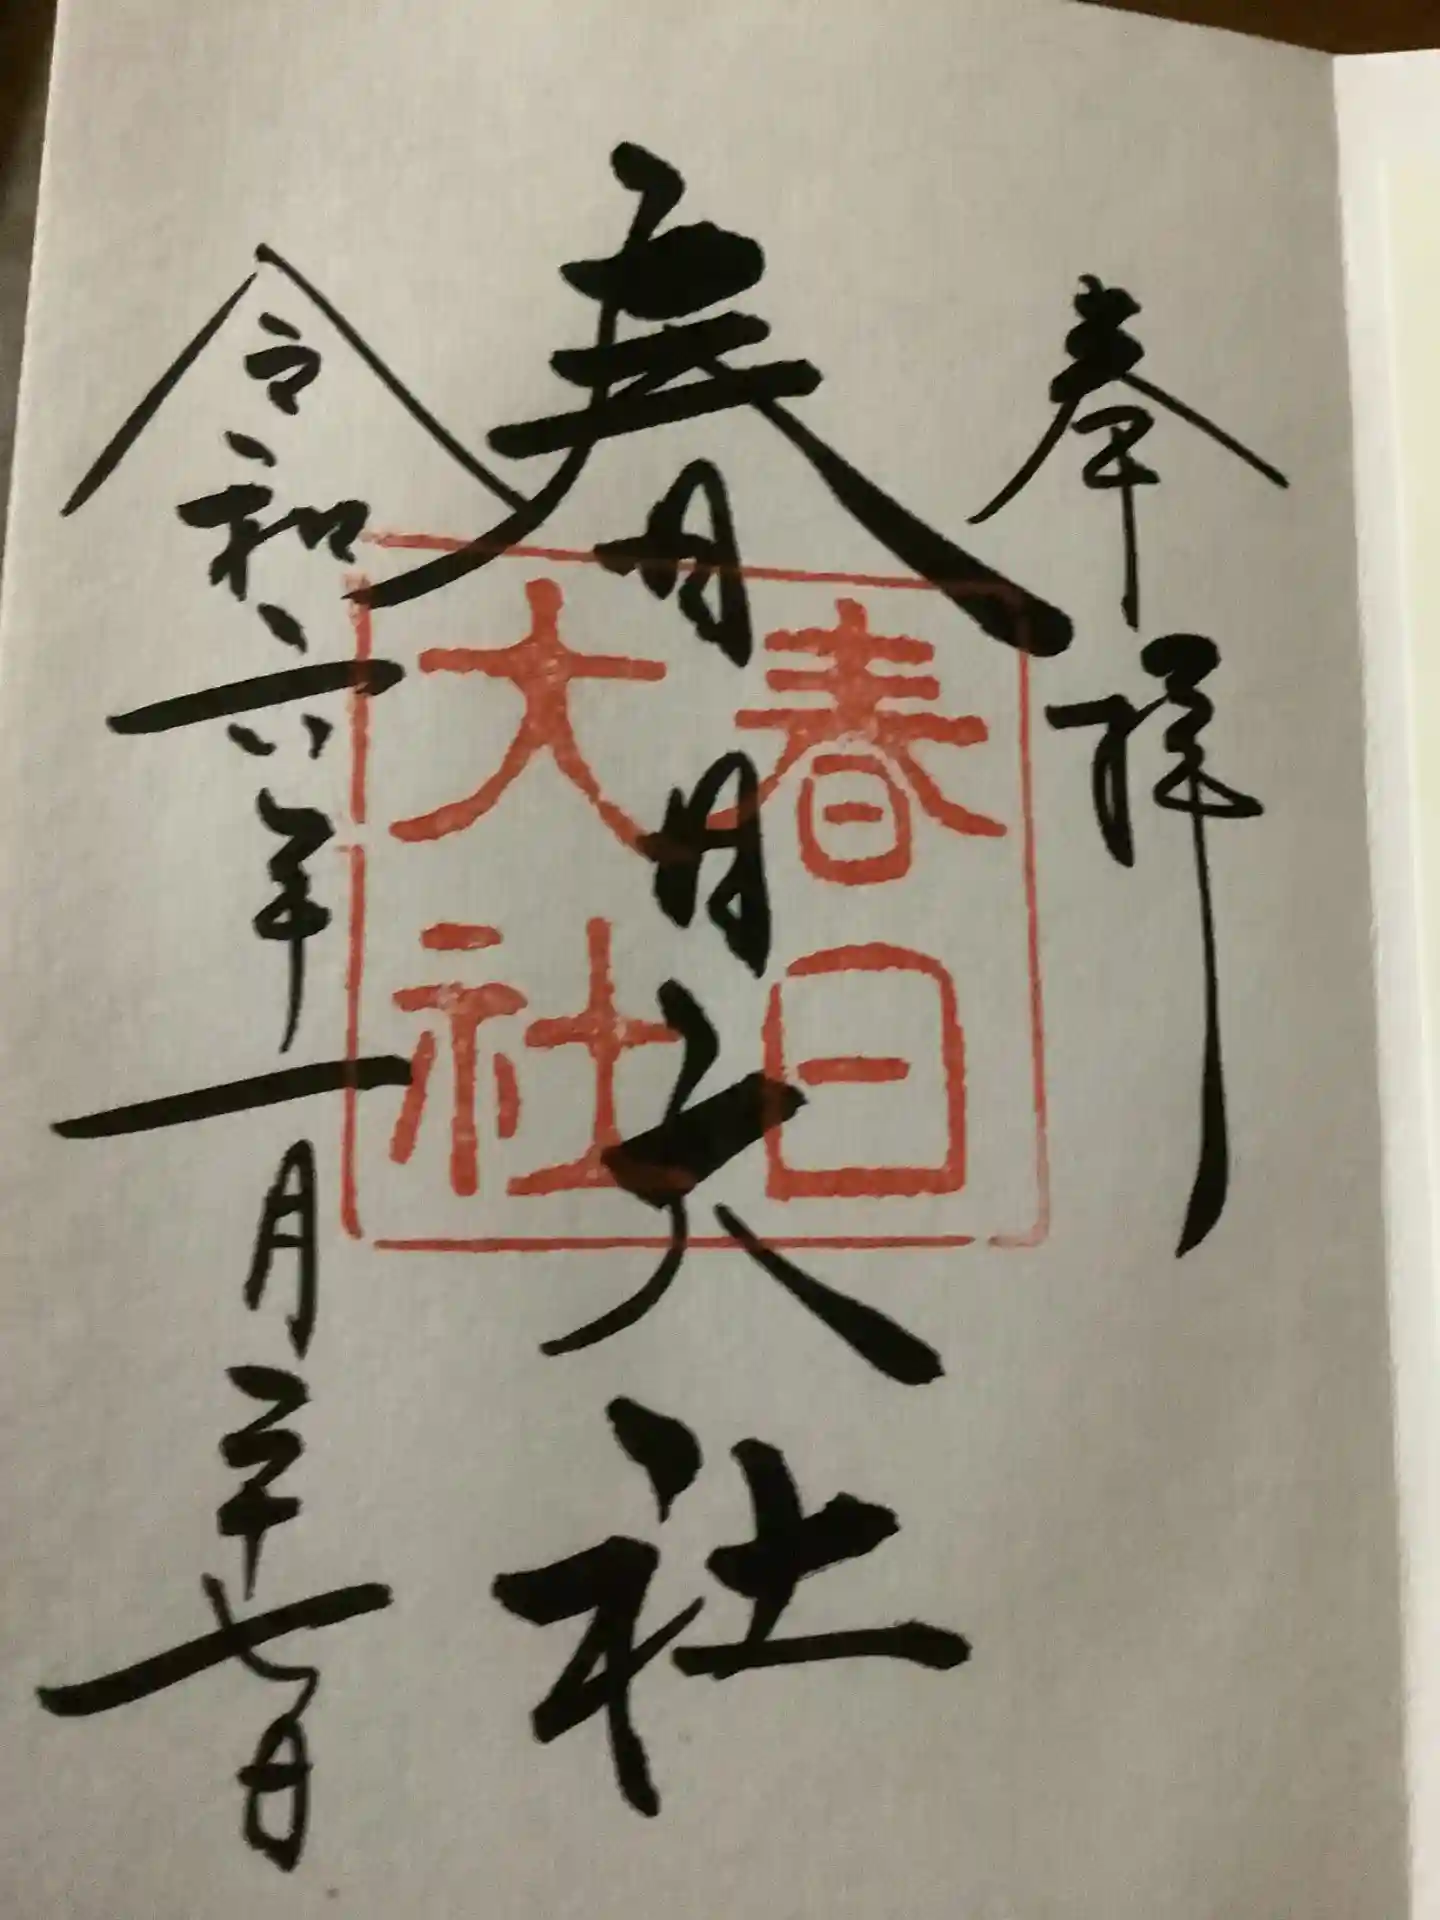 奉拝
春日大社
春日大社
令和六年一月二十七日